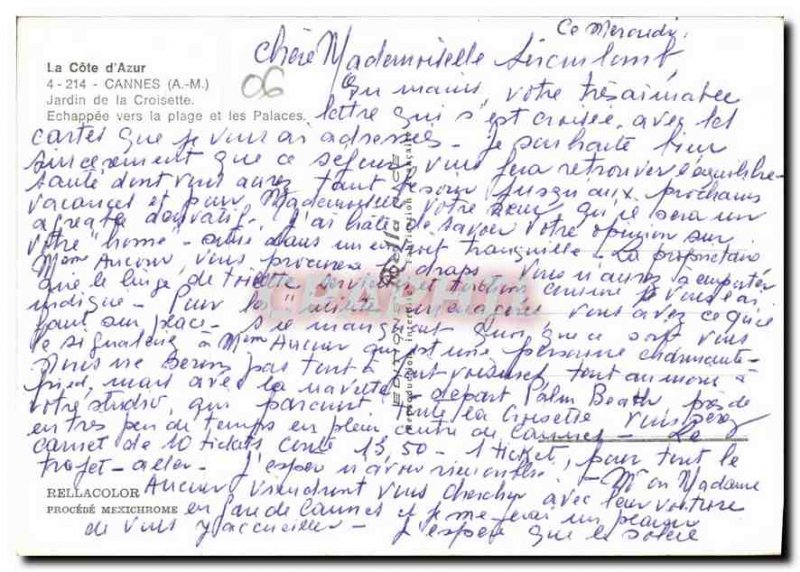 Ce Mercredi
Chère Mademoiselle
La Côte d'Azur
4 - 214 - CANNES (A.-M.)
Jardin de la Croisette.
Echappée vers la plage et les Palaces.
06
En mains, votre très aimable
lettre qui s'est croisée avec les
cartes que je vous ai adressées - Je souhaite bien
sincèrement que ce séjour vous fera retrouver l'équilibre-
santé dont vous aurez tant besoin jusqu'aux prochaines
vacances et pour Mademoiselle votre sœur, qu'il sera un
agréable dérivatif. J'ai hâte de savoir votre opinion sur
votre "home" - situé dans un endroit tranquille - La propriétaire
Mme Aucour, vous procurera les draps - vous n'aurez à emporter
que le linge de toilette, serviettes et torchons cuisine je vous l'ai
indiqué - Pour les ménagères, vous avez ce qu'il
faut sur place - S'il manquait quoi que ce soit vous
le signalerez à Mme Aucour qui est une personne charmante -
Nous ne serons pas tout à fait voisines tout au moins à
pied, mais avec la navette - départ Palm Beach près de
votre studio, qui parcourt toute la Croisette vous serez
en très peu de temps en plein centre de Cannes - Le
carnet de 10 tickets coûte 13,50 - 1 ticket, pour tout le
trajet - aller - J'espère n'avoir rien oublié - Mr ou Madame
Aucour viendront vous chercher avec leur voiture
en gare de Cannes et je me ferai un plaisir
de vous y accueillir - J'espère que le soleil
RELLACOLOR
PROCÉDÉ MEXICHROME